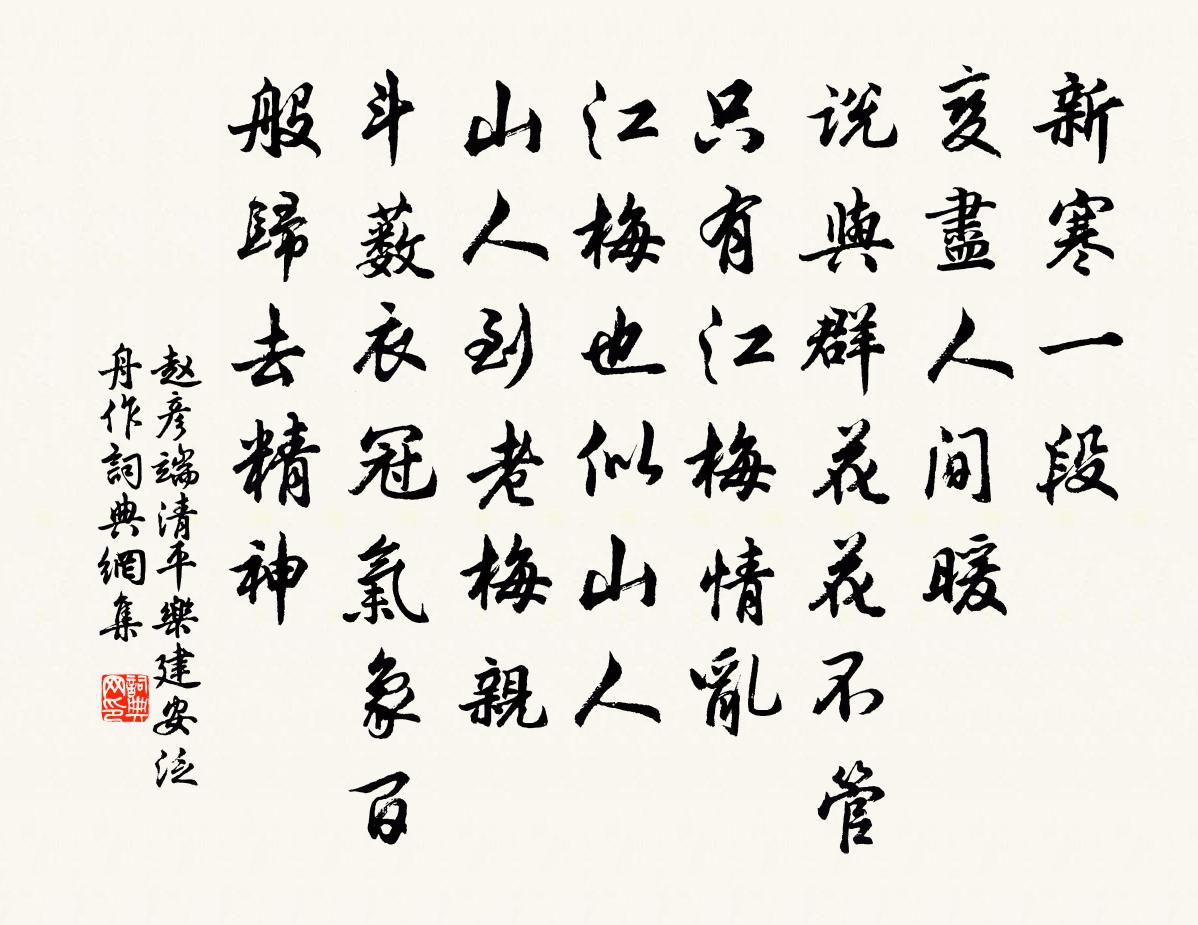 新寒一段
变盡人间暖
说與群花花不管
只有江梅情亂
江梅也似山人
山人到老梅親
斗薮衣冠氣象百
般歸去精神
赵彦端清平樂建安泛
舟作詞典網集
詞典网印